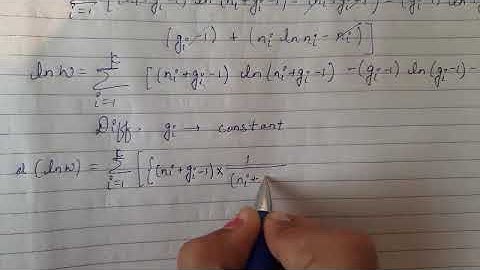 i=1
(gi-1) + (ni ln ni - ni)]
ln w = k Σ i=1 [(ni+gi-1) ln(ni+gi-1) - (gi-1) ln(gi-1) -
Diff. gi → constant
d (ln w) = k Σ i=1 [{(ni+gi-1) × 1/(ni+